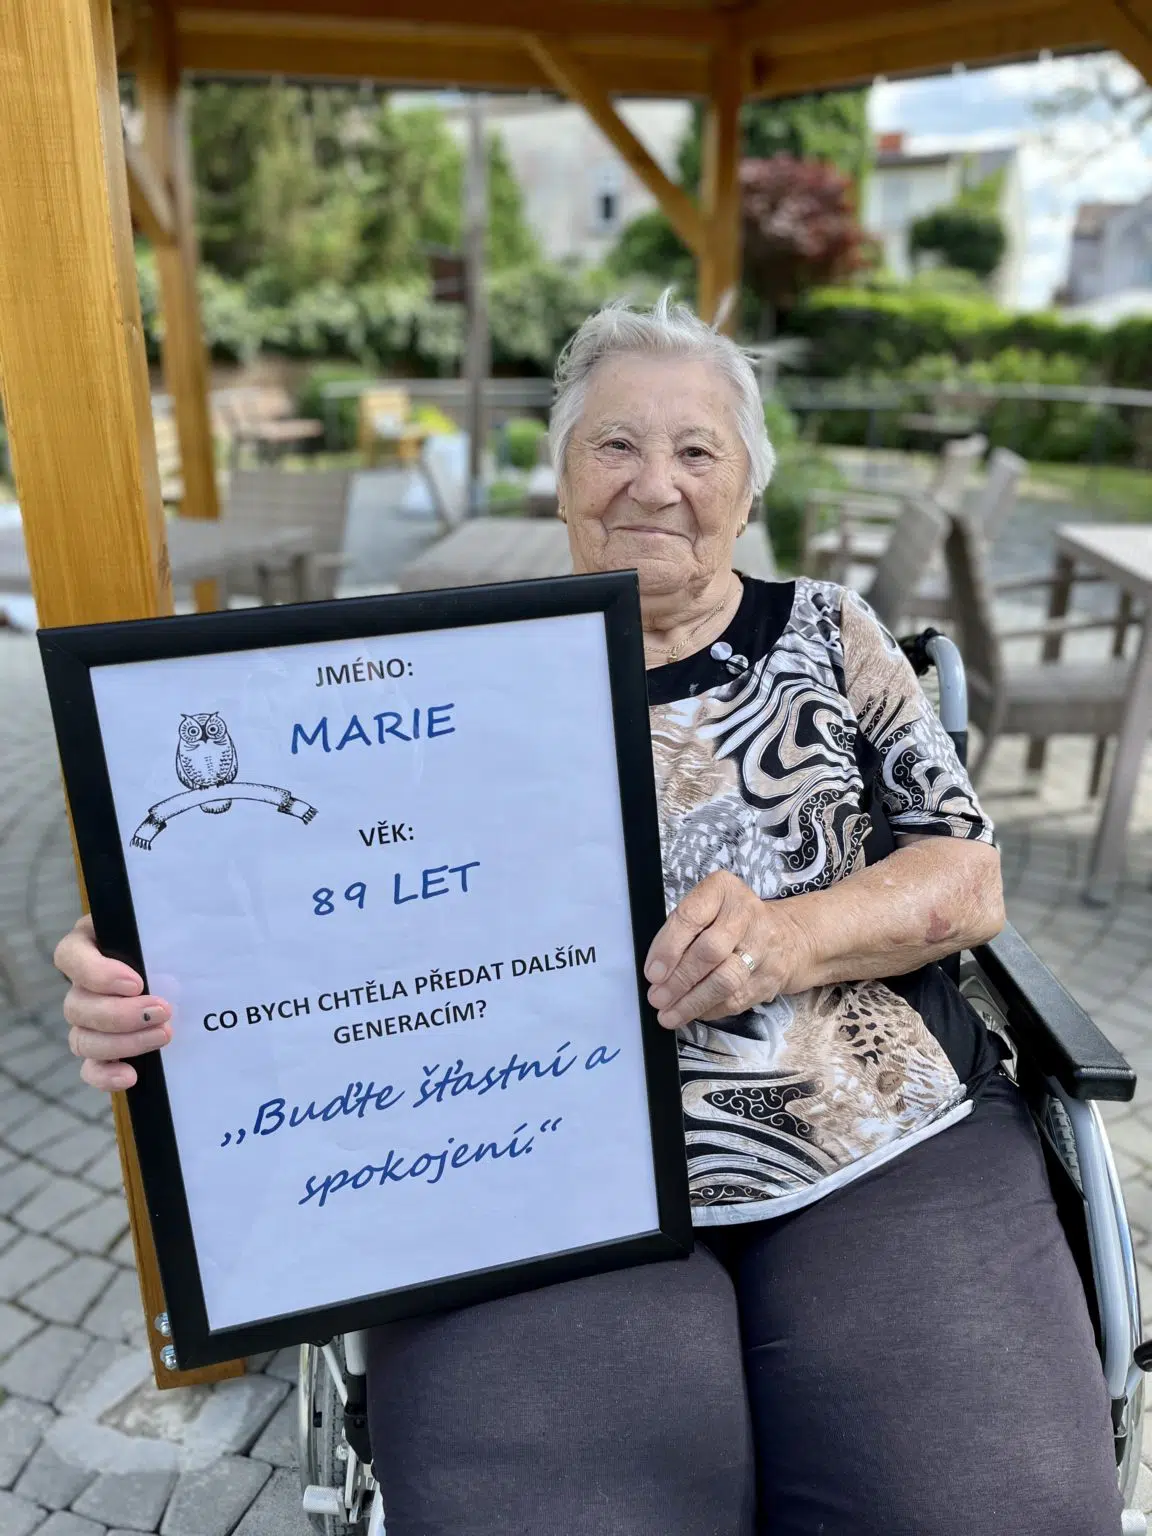 JMÉNO:
MARIE
VĚK:
89 LET
CO BYCH CHTĚLA PŘEDAT DALŠÍM
GENERACÍM?
„Buďte šťastní a
spokojení.“